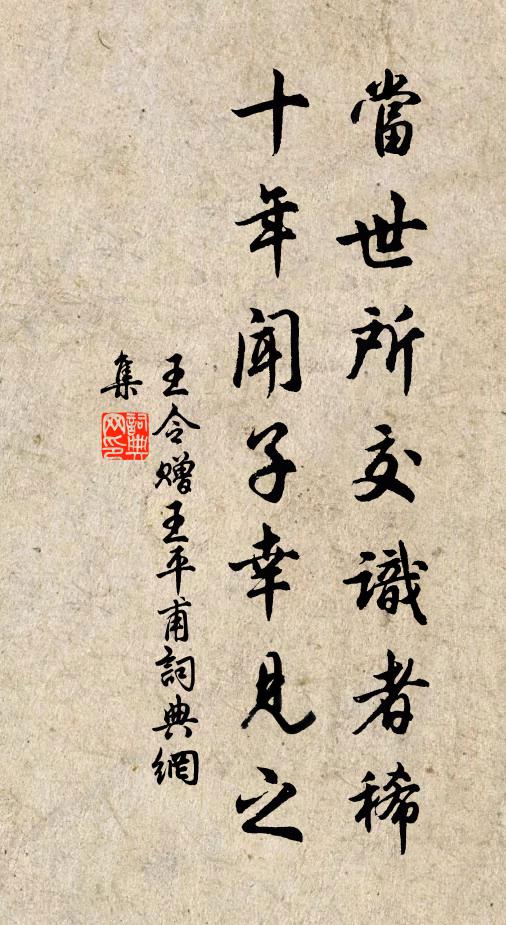 當世所交識者稀
十年聞子幸見之
王令贈王平甫詞典網
集
詞典
网印